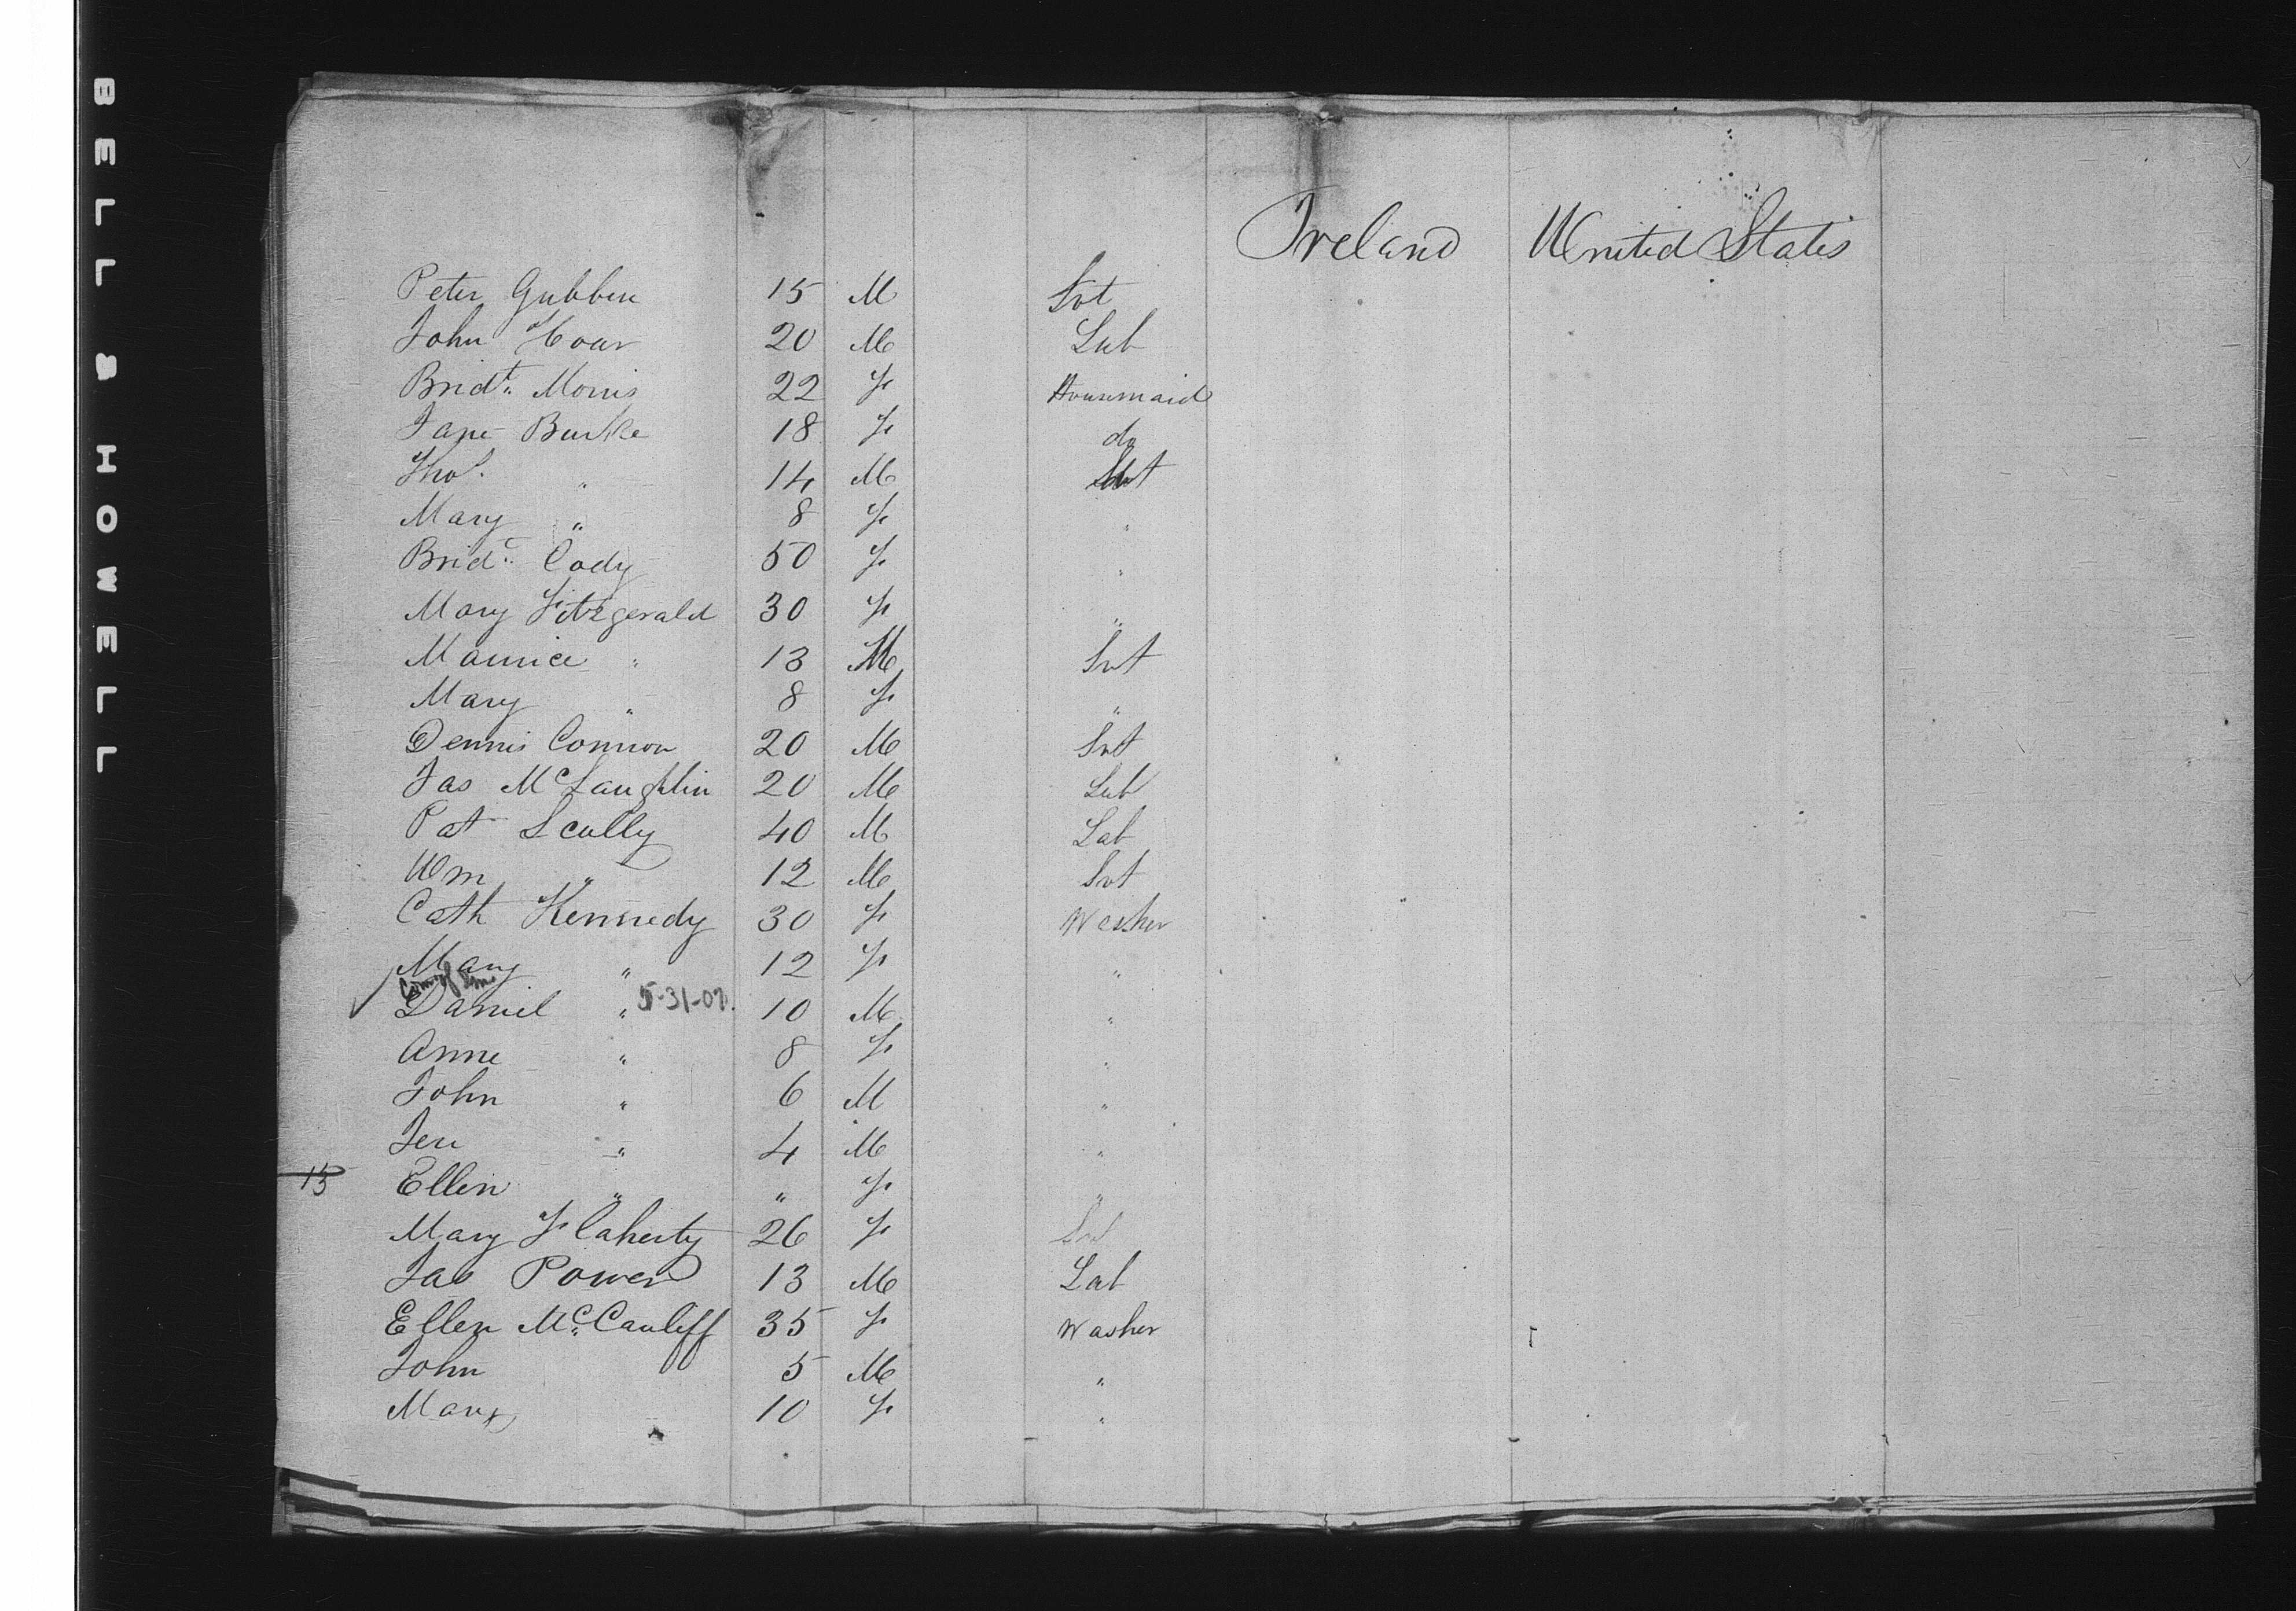 BELL & HOWELL
Ireland United States
Peter Gubben 15 M Svt
John Hoar 20 M Lab
Bridt. Morris 22 F Housemaid
Jane Burke 18 F do
Thos. " 14 M Svt
Mary " 8 F "
Bridt. Cody 50 F "
Mary Fitzgerald 30 F "
Maurice " 13 M Svt
Mary " 8 F "
Dennis Connor 20 M Svt
Jas McLaughlin 20 M Lab
Pat Scully 40 M Lab
Wm " 12 M Svt
Cath Kennedy 30 F Washer
Mary " 12 F "
Daniel " 5-31-07. 10 M "
Anne " 8 F "
John " 6 M "
Jer " 4 M "
15 Ellen " " F "
Mary Flaherty 26 F Svt
Jas Power 13 M Lab
Ellen McCauliff 35 F Washer
John 5 M "
Mary 10 F "